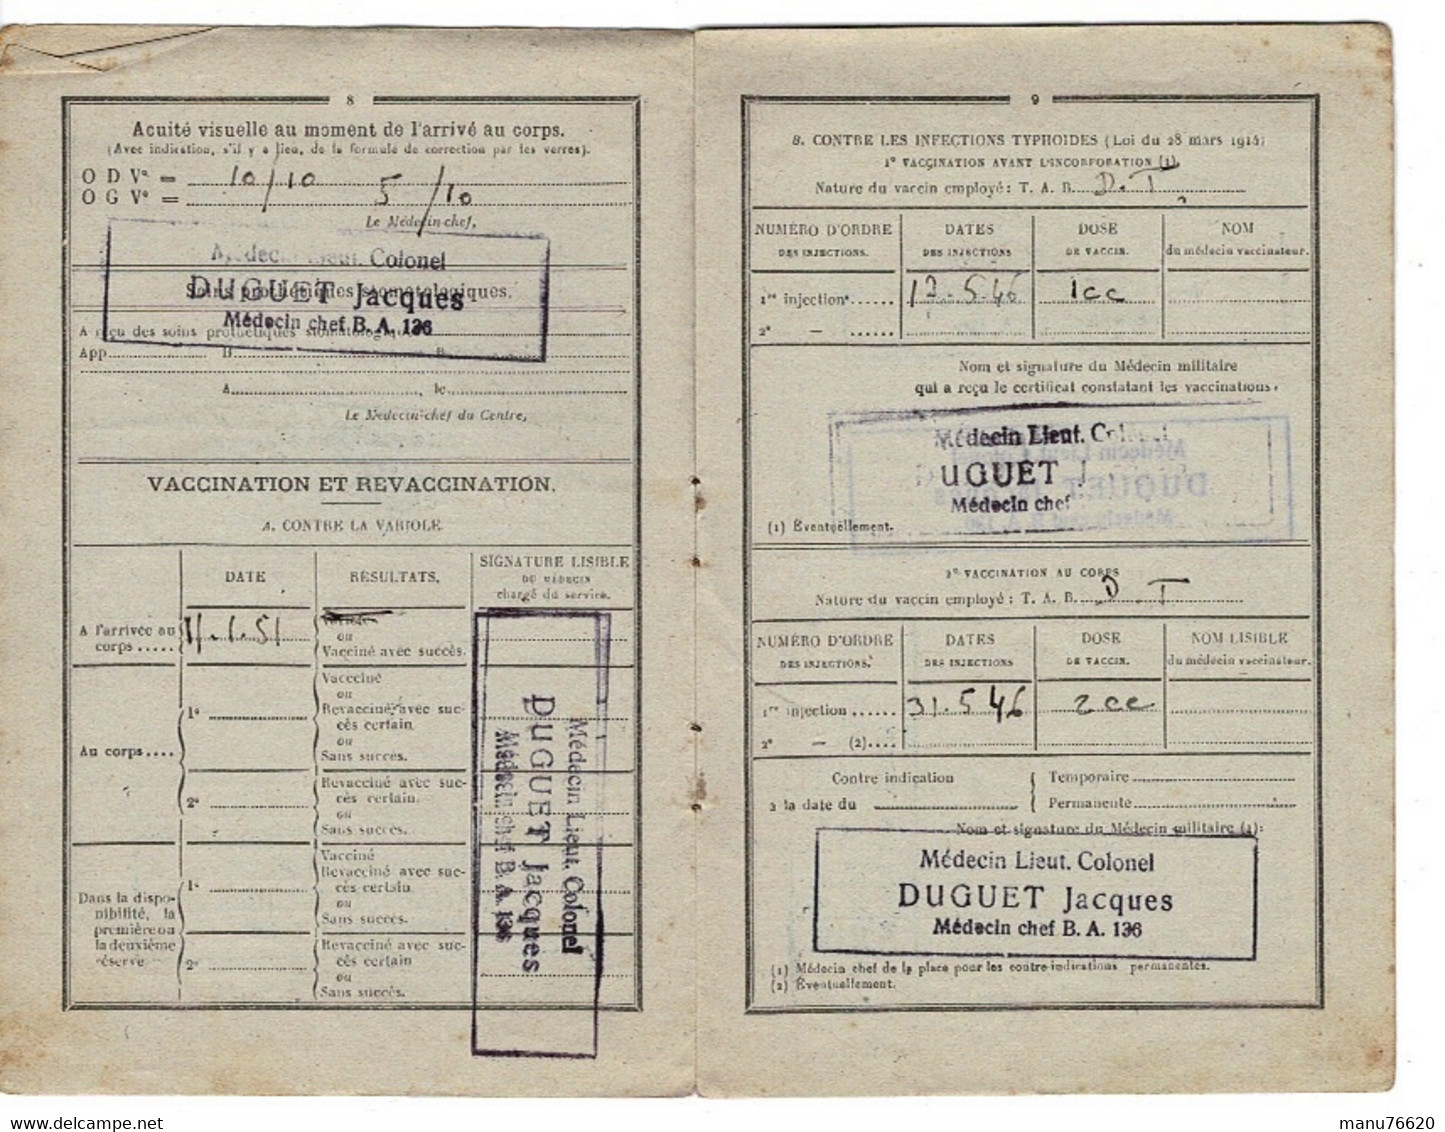 8
Acuité visuelle au moment de l'arrivé au corps.
(Avec indication, s'il y a lieu, de la formule de correction par les verres).
O D Vº = 10/10 5/10
O G Vº =
Le Médecin-chef,
Médecin Lieut. Colonel
DUGUET Jacques
Médecin chef B. A. 136
Soins prothétiques stomatologiques.
A reçu des soins prothétiques stomatologiques
App.
A le
Le Médecin-chef du Centre,
VACCINATION ET REVACCINATION.
A. CONTRE LA VARIOLE
DATE
RÉSULTATS.
SIGNATURE LISIBLE
DU MÉDECIN
chargé du service.
A l'arrivée au
corps
11.1.51
ou
Vacciné avec succès.
Au corps
1º
Vacciné
ou
Revacciné avec suc-
cès certain
ou
Sans succès.
2º
Revacciné avec suc-
cès certain.
ou
Sans succès.
Dans la dispo-
nibilité, la
première ou
la deuxième
réserve
1º
Vacciné
ou
Revacciné avec suc-
cès certain
ou
Sans succès.
2º
Revacciné avec suc-
cès certain
ou
Sans succès.
Médecin Lieut. Colonel
DUGUET Jacques
Médecin chef B. A. 136
9
B. CONTRE LES INFECTIONS TYPHOIDES (Loi du 28 mars 1914)
1º VACCINATION AVANT L'INCORPORATION (1)
Nature du vaccin employé : T. A. B. D.T
NUMÉRO D'ORDRE
DES INJECTIONS.
DATES
DES INJECTIONS
DOSE
DE VACCIN.
NOM
du médecin vaccinateur.
1re injection 12.5.46 1cc
2º —
Nom et signature du Médecin militaire
qui a reçu le certificat constatant les vaccinations.
Médecin Lieut. Colonel
UGUET J
Médecin chef
(1) Éventuellement.
2º VACCINATION AU CORPS
Nature du vaccin employé : T. A. B. D.T
NUMÉRO D'ORDRE
DES INJECTIONS.
DATES
DES INJECTIONS
DOSE
DE VACCIN.
NOM LISIBLE
du médecin vaccinateur.
1re injection 31.5.46 2cc
2º — (2)
Contre indication
à la date du
Temporaire
Permanente
Nom et signature du Médecin militaire (1):
Médecin Lieut. Colonel
DUGUET Jacques
Médecin chef B. A. 136
(1) Médecin chef de la place pour les contre-indications permanentes.
(2) Éventuellement.
delcampe.net
manu76620